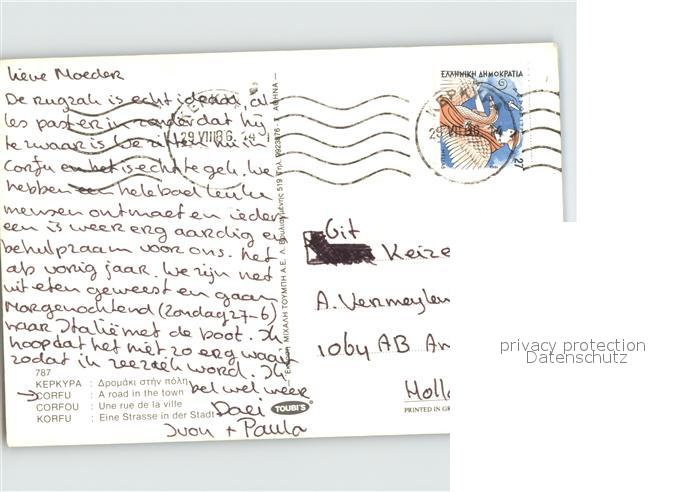 Lieve Moeder
De rugzak is echt ideaal, al
les past er in zonder dat hij
te zwaar is. We zitten nu in
Corfu en het is echt te gek. We
hebben een heleboel leuke
mensen ontmoet en ieder
een is weer erg aardig en
behulpzaam voor ons. Net
als vorig jaar. We zijn net
uit eten geweest en gaan
Morgenochtend (Zondag 27-6)
naar Italië met de boot. Ik
hoop dat het niet zo erg waait
zodat ik zeeziek word. Ik
bel wel weer
Doei
Ivon + Paula
787
ΚΕΡΚΥΡΑ : Δρομάκι στήν πόλη
CORFU : A road in the town
CORFOU : Une rue de la ville
KORFU : Eine Strasse in der Stadt
TOUBI'S
Έκδοση ΜΙΧΑΛΗ ΤΟΥΜΠΗ Α.Ε. Λ. Βουλιαγμένης 519 Τηλ. 9923876 - 7 ΑΘΗΝΑ
29 VIII 86 14
ΕΛΛΗΝΙΚΗ ΔΗΜΟΚΡΑΤΙΑ
27
29 VIII 86 14
Git
Keize
A. Vermeylen
1064 AB Am
Holla
PRINTED IN GR
privacy protection
Datenschutz